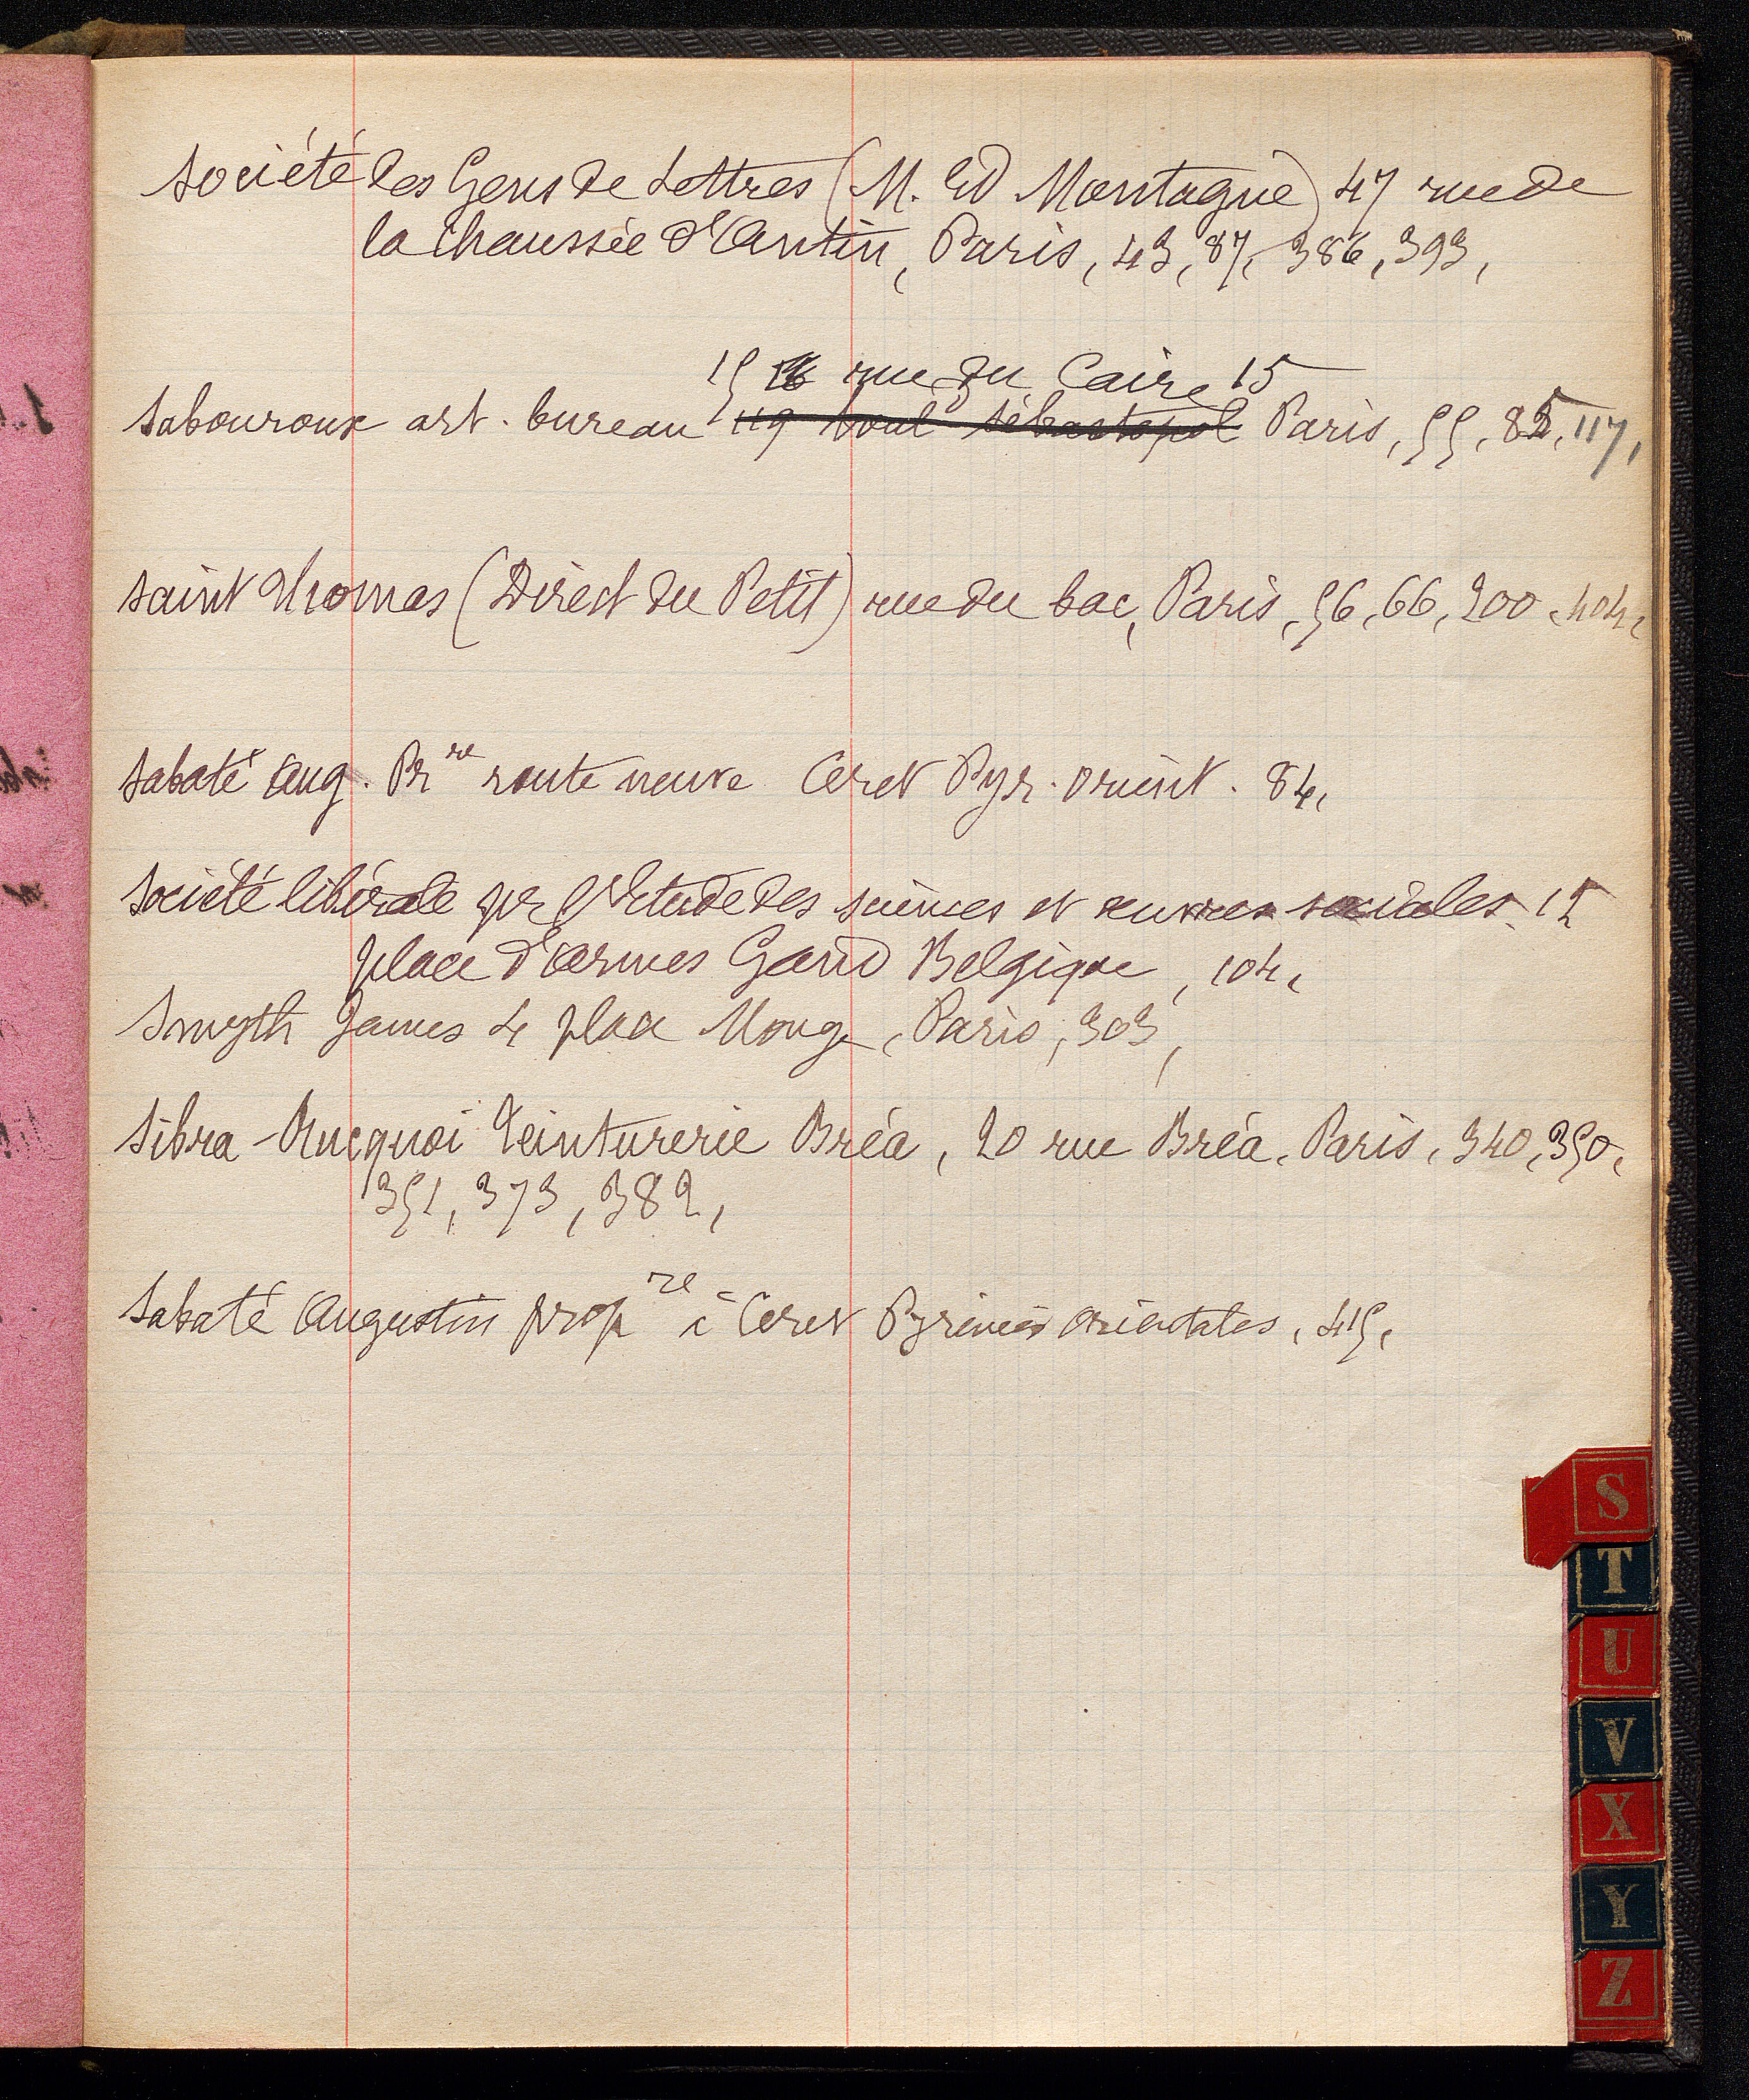 Société des Gens de Lettres (M. Ed Montagne) 47 rue de
la Chaussée d'Antin, Paris, 43, 87, 386, 393,
15 rue du Caire 15
Sabouroux art. bureau 119 boul d Sébastopol Paris, 55, 85, 117,
Saint Thomas (Direct du Petit) rue du bac, Paris, 56, 66, 200, 404,
Sabaté Aug. Pr re route neuve Ceret Pyr. orient. 84,
Société libérale pr l'Etude des sciences et œuvres sociales 12
place d'armes Gand Belgique, 104,
Smyth James 4 place Monge, Paris, 303,
Sibra-Rucquoi Teinturerie Bréa, 20 rue Bréa, Paris, 340, 350,
351, 373, 382,
Sabaté Augustin prop re à Ceret Pyrénées orientales, 415,
S
T
U
V
X
Y
Z